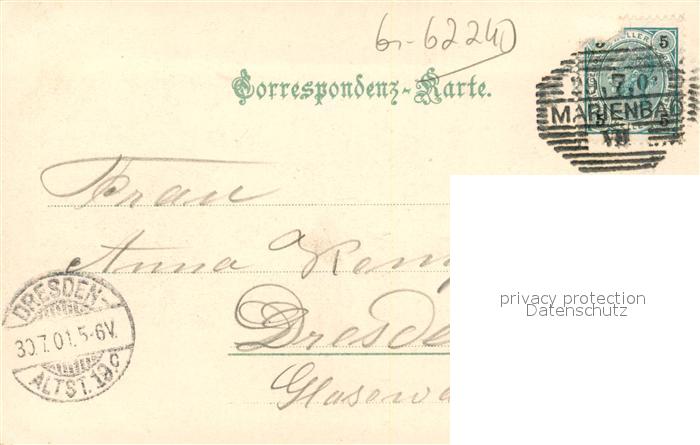 6r-62240
Correspondenz-Karte.
5 HELLER 5
29.7.01
MARIENBAD
5 5
VII
Frau
Anna
Dresde
DRESDEN-
30.7.01.5-6V.
ALTST.19.c
privacy protection
Datenschutz